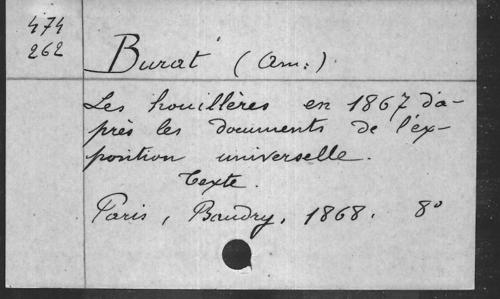 474
262
Burat (Am:).
Les houillères en 1867 d'a-
près les documents de l'ex-
position universelle.
Texte.
Paris, Baudry, 1868. 8°